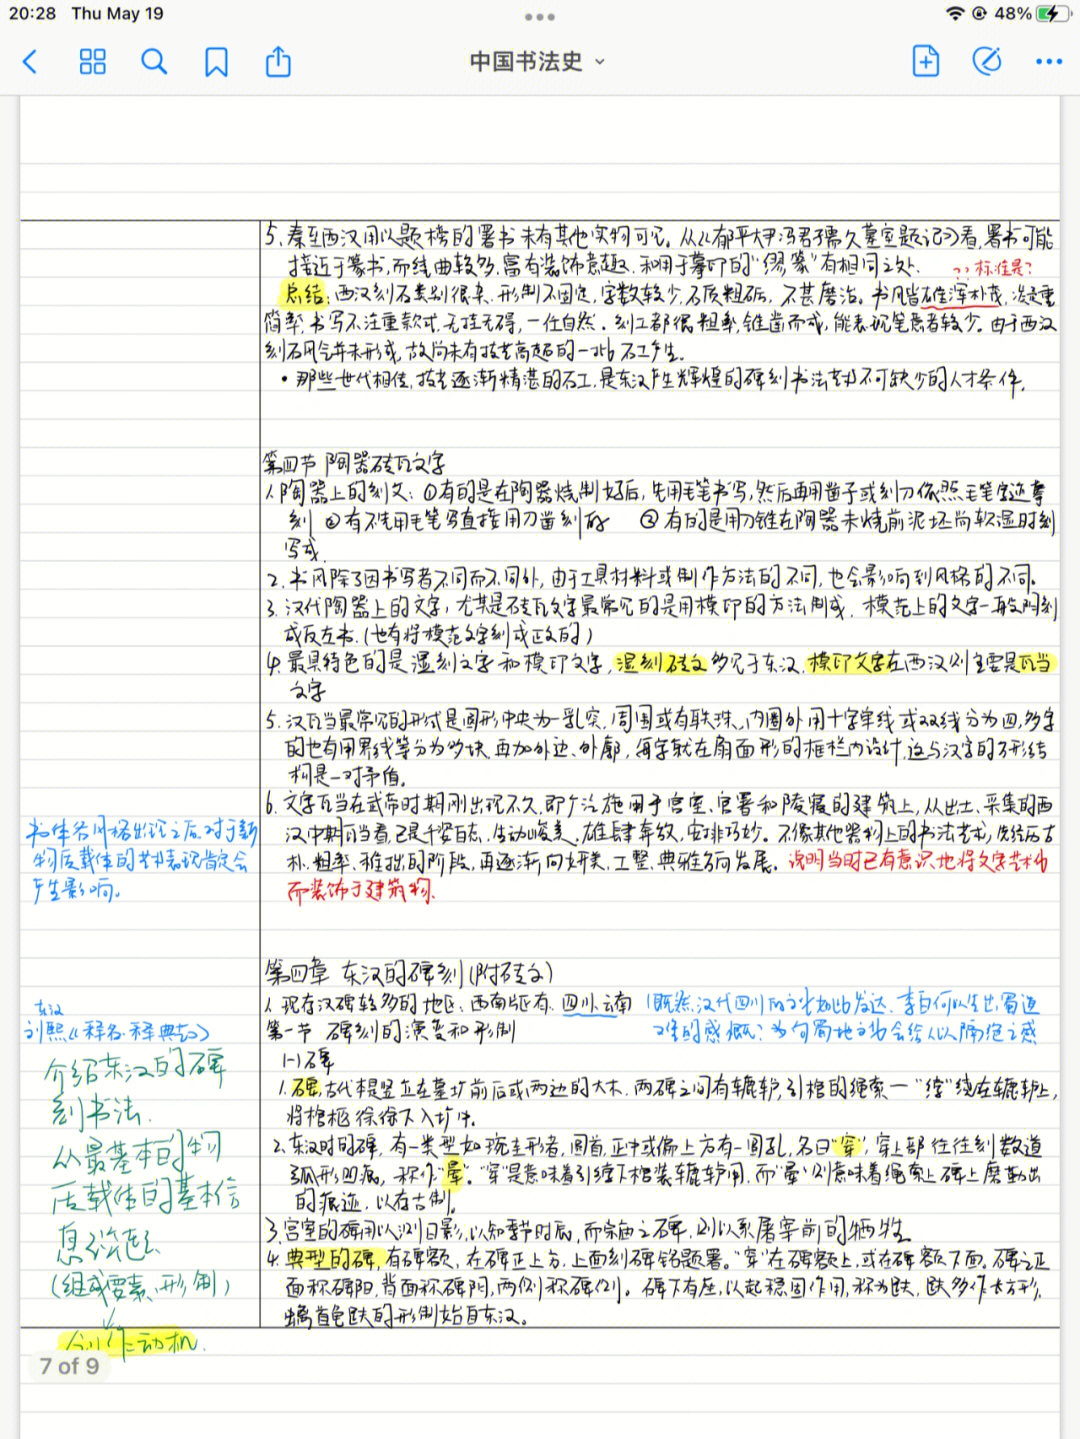 20:28 Thu May 19
48%
中国书法史
5. 秦至西汉用以题榜的署书未有其他实物可见。从《郁平大尹冯君孺久墓室题记》看，署书可能
接近于篆书，而线曲较多，富有装饰意趣，和用于摹印的“缪篆”有相同之处。
??标准是？
总结：西汉刻石类别很杂，形制不固定，字数较少，石质粗砺，不甚磨治。书风皆雄浑朴茂，浅
简率，书写不注重款式，无拄无碍，一任自然。刻工都很粗率，锥凿而成，能表现笔意者较少。由于西汉
刻石风气并未形成，故尚未有技艺高超的一批石工产生。
• 那些世代相传，技艺逐渐精湛的石工，是东汉产生辉煌的碑刻书法艺术不可缺少的人才条件。
第四节 陶器砖瓦文字
1. 陶器上的刻文：①有的是在陶器烧制好后，先用毛笔书写，然后再用凿子或刻刀依照毛笔字迹
刻 ②有不先用毛笔写直接用刀凿刻的 ③有的是用刀锥在陶器未烧前泥坯尚软湿时刻
写成
2. 书风除了因书写者不同而不同外，由于工具材料或制作方法的不同，也会影响到风格的不同。
3. 汉代陶器上的文字，尤其是砖瓦文字最常见的是用模印的方法制成，模范上的文字一般阴刻
或反左书，（也有将模范文字刻成正文的）
4. 最具特色的是湿刻文字和模印文字，湿刻砖文多见于东汉，模印文字在西汉则主要是瓦当
文字
5. 汉瓦当最常见的形式是圆形中央为一乳突，周围或有联珠，内圈外用十字单线或双线分为四，多字
的也有用界线等分为多块，再加外边、外廓，每字就在扇面形的框栏内设计，这与汉字的方形结
构是一对矛盾。
6. 文字瓦当在武帝时期刚出现不久，即广泛施用于宫室、官署和陵寝的建筑上，从出土、采集的西
汉中期瓦当看，已是千姿百态，生动俊美，雄肆奔放，安排巧妙。不像其他器物上的书法艺术，先经历古
朴、粗率、稚拙的阶段，再逐渐向妍美、工整、典雅方向发展。说明当时已有意识地将文字艺术化
而装饰于建筑物。
书体各风格出现之后，对于新
物质载体的艺术表现肯定会
产生影响。
第四章 东汉的碑刻（附砖文）
1. 现存汉碑较多的地区，西南地区有，四川、云南
（既然汉代四川的文化如此发达，李白何以生出蜀道
难的感慨？为何蜀地文化会给人以隔绝之感
第一节 碑刻的演变和形制
东汉
刘熙《释名·释典艺》
介绍东汉的碑
刻书法
从最基本的物
质载体的基本信
息谈起
（组成要素、形制）
创作动机
(一) 碑
1. 碑，古代本是竖立在墓圹前后或两边的大木，两碑之间有辘轳，引棺的绳索—“繂”绕在辘轳上，
将棺柩徐徐下入圹中。
2. 东汉时的碑，有一类型如琬圭形者，圆首，正中或偏上方有一圆孔，名曰“穿”，穿上部往往刻数道
弧形凹痕，称作“晕”。“穿”是意味着引绳下棺装辘轳用，而“晕”则意味着绳索在碑上磨勒出
的痕迹，以存古制。
3. 宫室的碑用以测日影，以知季节时辰，而宗庙之碑，则以系屠宰前的牺牲
4. 典型的碑，有碑额，在碑正上方，上面刻碑铭题署。“穿”在碑额上，或在碑额下面。碑之正
面称碑阳，背面称碑阴，两侧称碑侧。碑下有座，以起稳固作用，称为趺，趺多作长方形，
螭首龟趺的形制始自东汉。
7 of 9